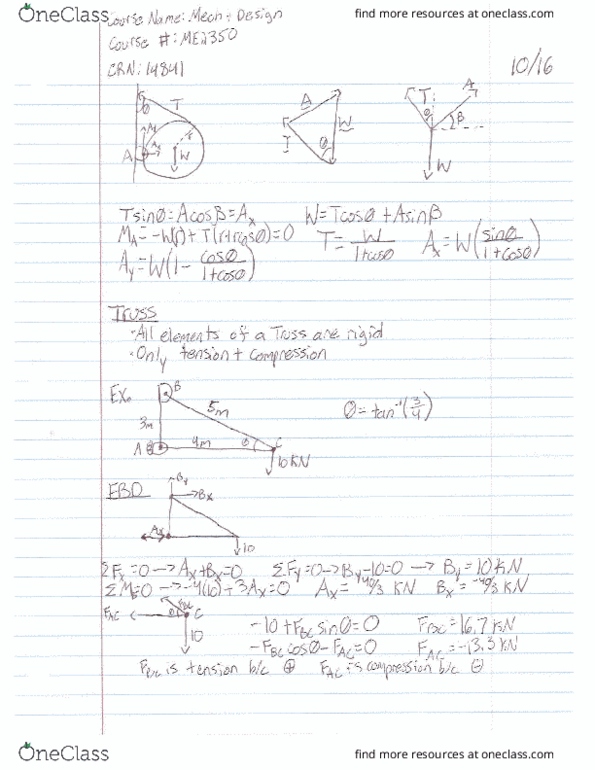 OneClass
find more resources at oneclass.com
Course Name: Mech + Design
Course #: ME2350
CRN: 14841
10/16
θ T
M
A r W
A W T θ
T θ A β W
Tsinθ = Acosβ = Ax W = Tcosθ + Asinβ
MA = -W(r) + T(r+rcosθ) = 0 T = W/(1+cosθ) Ax = W(sinθ/(1+cosθ))
Ay = W(1 - cosθ/(1+cosθ))
Truss
· All elements of a Truss are rigid
· Only tension + compression
Ex. B 5m θ = tan⁻¹(3/4)
3m
A 4m θ C
10KN
FBD By
Bx
Ax
10
ΣFx = 0 → Ax + Bx = 0 ΣFy = 0 → By - 10 = 0 → By = 10 KN
-4(10) + 3Ax = 0 Ax = 40/3 KN Bx = -40/3 KN
FAC FBC θ C
10
-10 + FBC sinθ = 0 FBC = 16.7 KN
-FBC cosθ - FAC = 0 FAC = -13.3 KN
FBC is tension b/c ⊕ FAC is compression b/c ⊖
OneClass
find more resources at oneclass.com